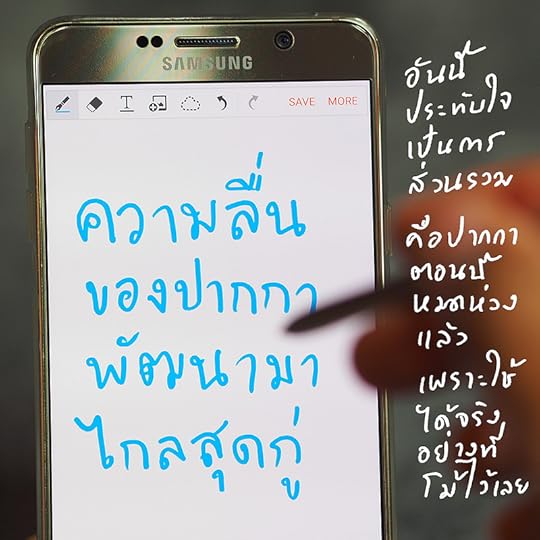 SAMSUNG
T
SAVE MORE
ความลื่น
ของปากกา
พัฒนามา
ไกลสุดกู่
อันนี้
ประทับใจ
เป็นการ
ส่วนรวม
คือปากกา
ตอนนี้
หมดห่วง
แล้ว
เพราะใช้
ได้จริง
อย่างที่
โม้ไว้เลย